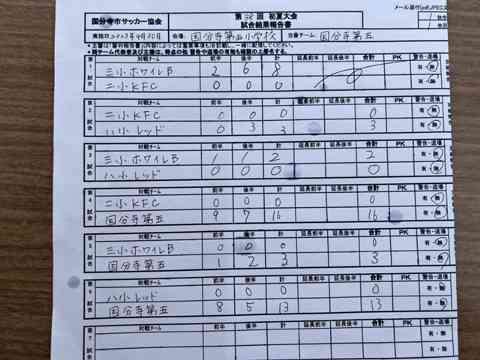 国分寺市サッカー協会 第38回 初夏大会
試合結果報告書
会場: 国分寺第五小学校 当番チーム 国分寺第五
第1試合 対戦チーム 前半 後半 計 延長前半 延長後半 合計 PK 警告・退場
三小ホワイトB 2 6 8 有・無
二小KFC 0 0 0
第2試合 対戦チーム 前半 後半 計 延長前半 延長後半 合計 PK 警告・退場
二小KFC 0 0 0 0 有・無
八小レッド 0 3 3 3
第3試合 対戦チーム 前半 後半 計 延長前半 延長後半 合計 PK 警告・退場
三小ホワイトB 1 1 2 2 有・無
八小レッド 0 0 0 0
第4試合 対戦チーム 前半 後半 計 延長前半 延長後半 合計 PK 警告・退場
二小KFC 0 0 0 0 有・無
国分寺第五 9 7 16 16
第5試合 対戦チーム 前半 後半 計 延長前半 延長後半 合計 PK 警告・退場
三小ホワイトB 0 0 0 0 有・無
国分寺第五 1 2 3 3
第6試合 対戦チーム 前半 後半 計 延長前半 延長後半 合計 PK 警告・退場
八小レッド 0 0 0 0 有・無
国分寺第五 8 5 13 13
第7 対戦チーム 前半 後半 計 延長前半 延長後半 合計 PK 警告・退場